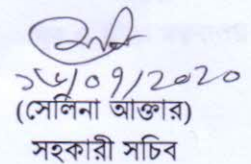 ১৫/০৭/২০২০
(সেলিনা আক্তার)
সহকারী সচিব